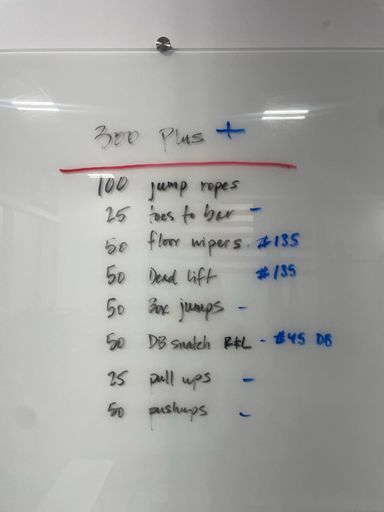 300 Plus +
100 jump ropes
25 toes to bar -
50 floor wipers. #135
50 Dead lift #135
50 Box jumps -
50 DB snatch R&L - #45 DB
25 pull ups -
50 pushups -